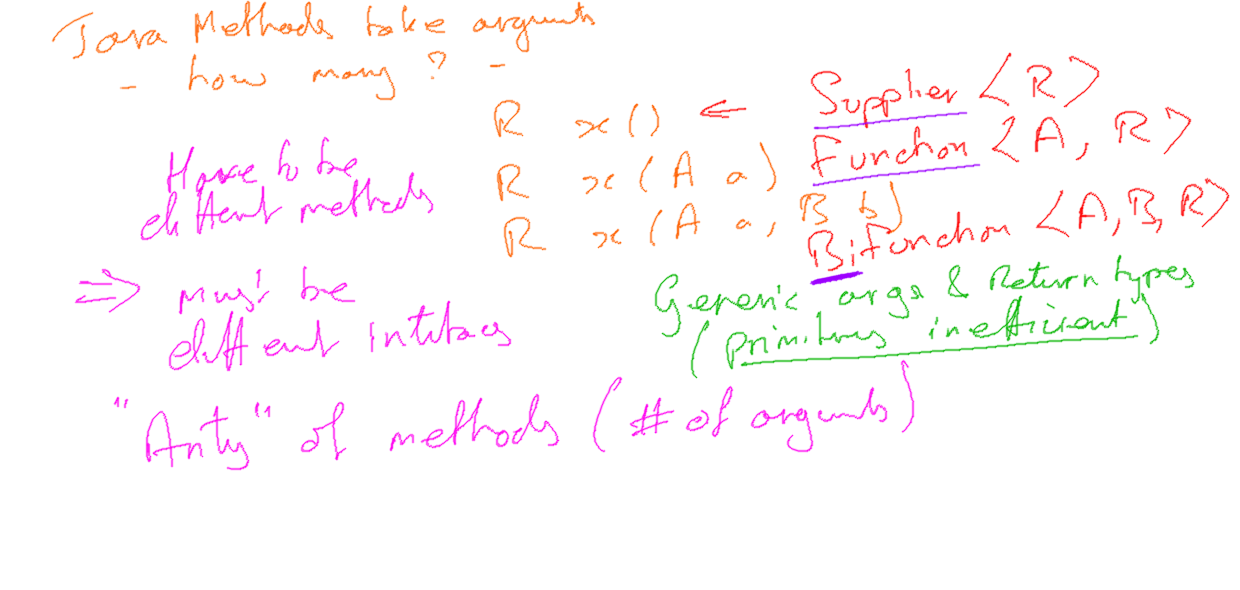 Java Methods take arguments
- how many? -
R x() ⇐ Supplier <R>
R x(A a) Function <A, R>
R x(A a, B b) BiFunction <A, B, R>
Have to be
different methods
⇒ must be
different interfaces
Generic args & Return types
(primitives inefficient)
"Arity" of methods (# of arguments)